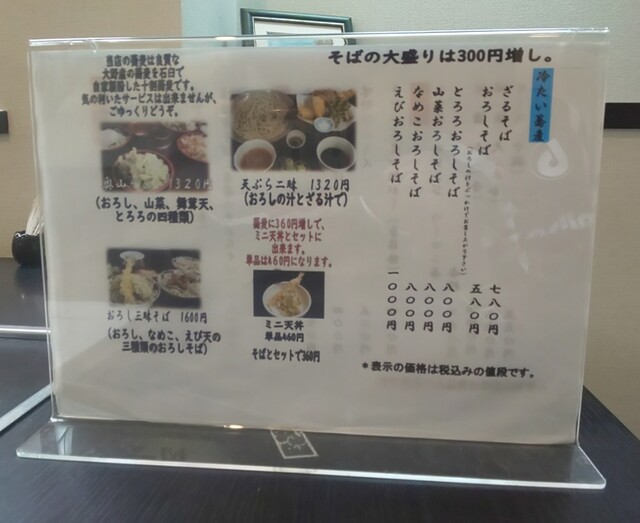 そばの大盛りは300円増し。
当店の蕎麦は良質な
大野産の蕎麦を石臼で
自家製粉した十割蕎麦です。
気の利いたサービスは出来ませんが、
ごゆっくりどうぞ。
1320円
(おろし、山菜、舞茸天、
とろろの四種類)
おろし三味そば 1600円
(おろし、なめこ、えび天の
三種類のおろしそば)
天ぷら二味 1320円
(おろしの汁とざる汁で)
蕎麦に360円増しで、
ミニ天丼とセットに
出来ます。
単品は460円になります。
ミニ天丼
単品460円
そばとセットで360円
冷たい蕎麦
ざるそば 七八〇円
おろしそば 五八〇円
とろろおろしそば 八〇〇円
山菜おろしそば 八〇〇円
なめこおろしそば 八〇〇円
えびおろしそば 一〇〇〇円
*表示の価格は税込みの値段です。